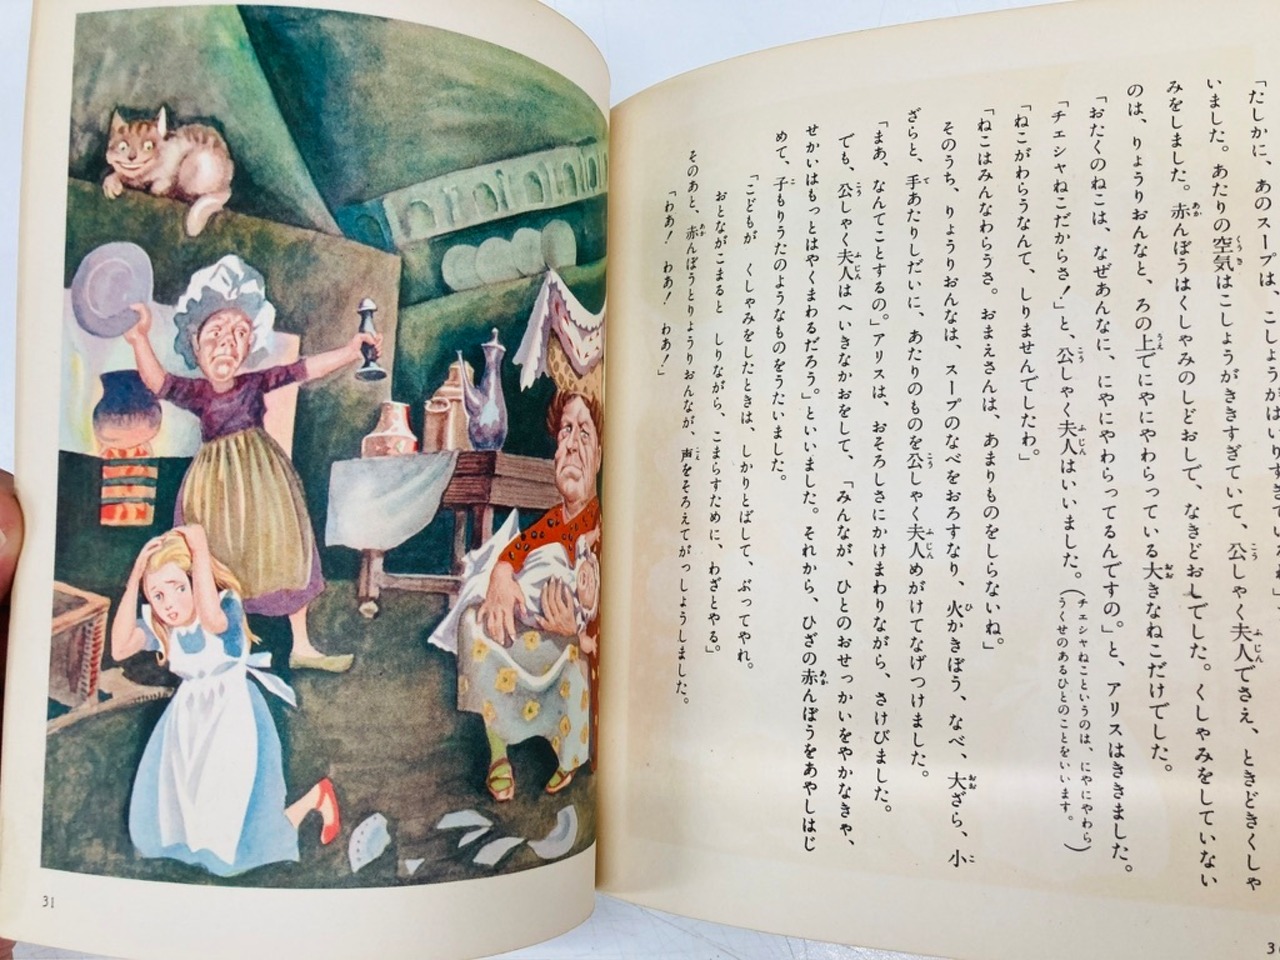 「たしかに、あのスープは、こしょうがはいりすぎているね」
いました。あたりの空気はこしょうがききすぎていて、公しゃく夫人でさえ、ときどきくしゃ
みをしました。赤んぼうはくしゃみのしどおしで、なきどおしでした。くしゃみをしていない
のは、りょうりおんなと、ろの上でにやにやわらっている大きなねこだけでした。
「おたくのねこは、なぜあんなに、にやにやわらってるんですの。」と、アリスはききました。
「チェシャねこだからさ！」と、公しゃく夫人はいいました。（チェシャねこというのは、にやにやわら
うくせのあるひとのことをいいます。）
「ねこがわらうなんて、しりませんでしたわ。」
「ねこはみんなわらうさ。おまえさんは、あまりものをしらないね。」
そのうち、りょうりおんなは、スープのなべをおろすなり、火かきぼう、なべ、大ざら、小
ざらと、手あたりしだいに、あたりのものを公しゃく夫人めがけてなげつけました。
「まあ、なんてことするの。」アリスは、おそろしさにかけまわりながら、さけびました。
でも、公しゃく夫人はへいきなかおをして、「みんなが、ひとのおせっかいをやかなきゃ、
せかいはもっとはやくまわるだろう。」といいました。それから、ひざの赤んぼうをあやしはじ
めて、子もりうたのようなものをうたいました。
「こどもが　くしゃみをしたときは、しかりとばして、ぶってやれ。
おとながこまると　しりながら、こまらすために、わざとやる。」
そのあと、赤んぼうとりょうりおんなが、声をそろえてがっしょうしました。
「わあ！　わあ！　わあ！」
31